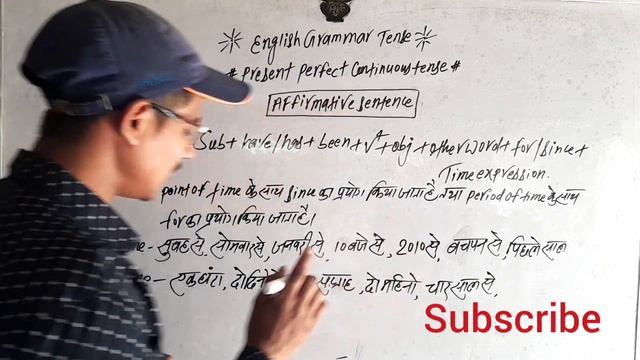 English Grammar Tense
# Present Perfect Continuous tense #
Affirmative sentence
Sub + have/has + been + V⁴ + obj + other word + for/since +
Time expression.
point of time के साथ since का प्रयोग किया जाता है तथा period of time के साथ
for का प्रयोग किया जाता है।
- सुबह से, सोमवार से, जनवरी से, 10 बजे से, 2010 से, बचपन से, पिछले साल
- एक घंटा, दो दिनो दो महिनो, चार साल से,
Subscribe